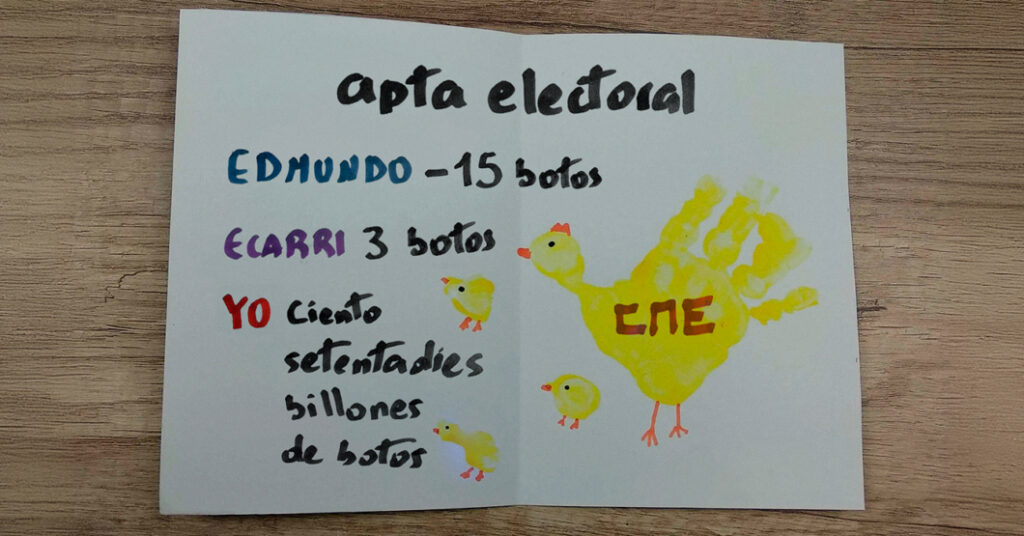 apta electoral
EDMUNDO - 15 botos
ECARRI 3 botos
YO Ciento
setentadies
billones
de botos
CNE